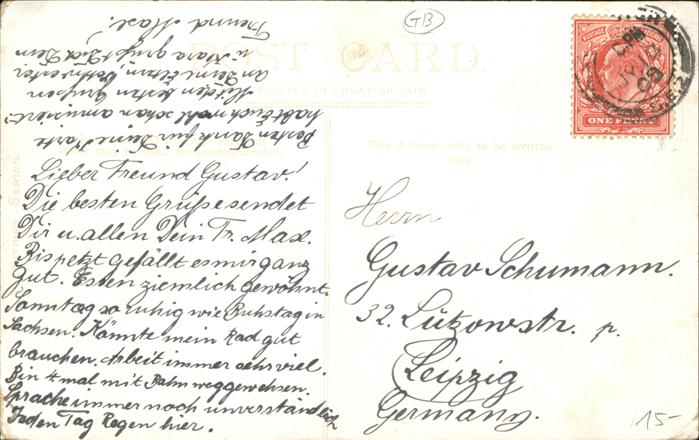 GB
POST CARD.
PRINTED IN GREAT BRITAIN
The Address only to be written
here
for communication.
POSTAGE
ONE PENNY
Lieber Freund Gustav!
Die besten Grüße sendet
Dir u. allen Dein Fr. Max.
Bis jetzt gefällt es mir ganz
gut. Essen ziemlich gewöhnt.
Sonntag so ruhig wie Buhstag in
Sachsen. Könnte mein Rad gut
brauchen. Arbeit immer sehr viel.
Bin 4 mal mit Bahn weggewesen.
Sprache immer noch unverständlich
Jeden Tag Regen hier.
Besten Dank für Deine Karte
habt Euch wohl schon amüsiert?
Mit den besten Grüßen
an Deine Eltern
u. Klara grüßt Dich Dein
Freund Max.
Herrn
Gustav Schumann.
32. Lützowstr. p.
Leipzig
Germany.
15-